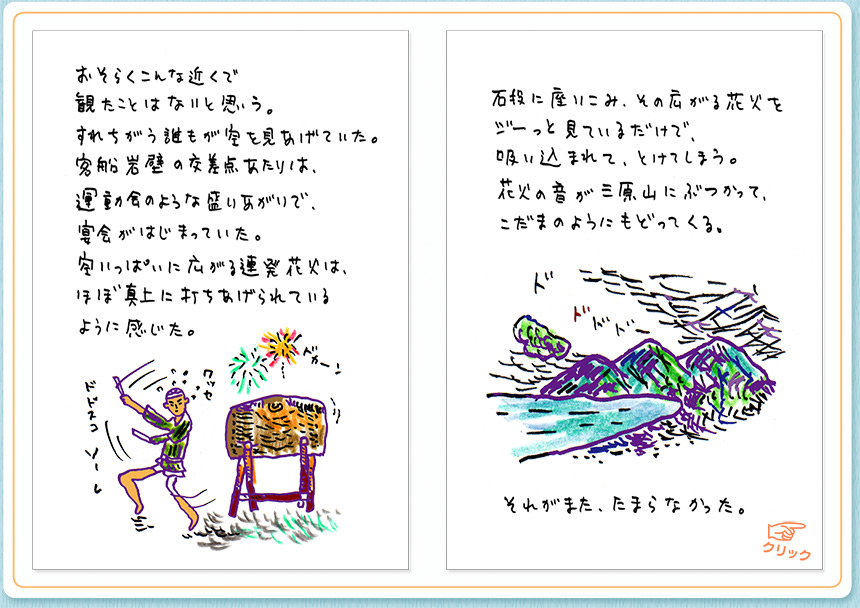 おそらくこんな近くで
観たことはないと思う。
すれちがう誰もが空を見あげていた。
客船岩壁の交差点あたりは、
運動会のような盛りあがりで、
宴会がはじまっていた。
空いっぱいに広がる連発花火は、
ほぼ真上に打ちあげられている
ように感じた。
ドカーン
ワッセ
ドドスコ
ソーレ
石段に座りこみ、その広がる花火を
ジーっと見ているだけで、
吸い込まれて、とけてしまう。
花火の音が三原山にぶつかって、
こだまのようにもどってくる。
ド
ドドドー
それがまた、たまらなかった。
クリック